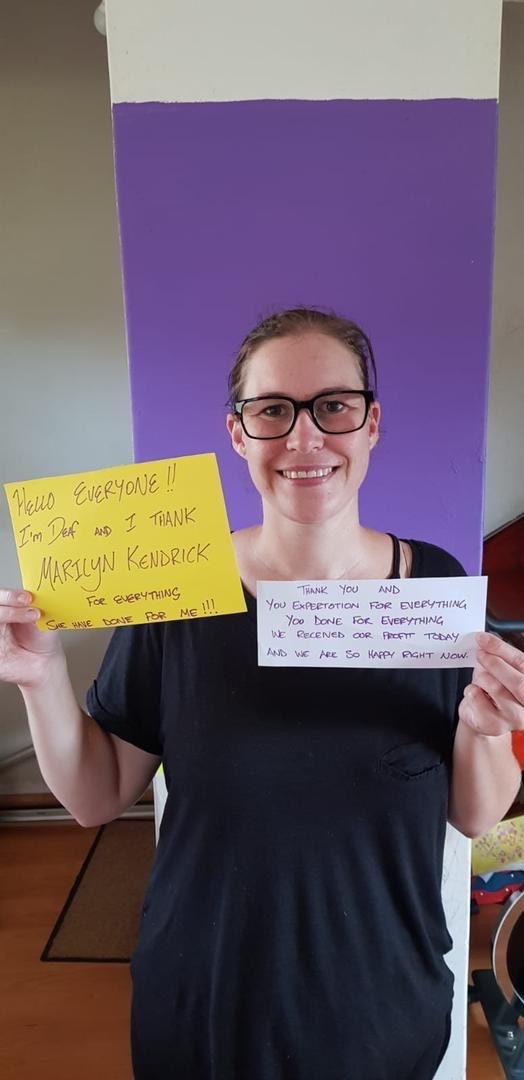 HELLO EVERYONE!!
I'm DEAF AND I THANK
MARILYN KENDRICK
FOR EVERYTHING
SHE HAVE DONE FOR ME!!!
THANK YOU AND
YOU EXPERTATION FOR EVERYTHING
YOU DONE FOR EVERYTHING
WE RECEIVED OUR PROFIT TODAY
AND WE ARE SO HAPPY RIGHT NOW.